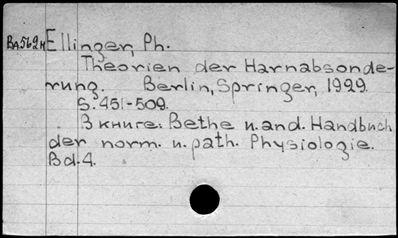 BA562H Ellinger, Ph.
Theorien der Harnabsonde-
rung. Berlin, Springer, 1929.
S. 451-509.
В книге: Bethe u. and. Handbuch
der norm. u. path. Physiologie.
Bd. 4.